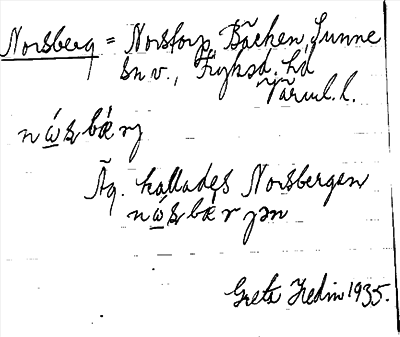 Norsberg = Norstorp, Bäcken, Sunne
sn v., Fryksd. hd
Värml. l.
nώʂbǽrj
Äg. kallades Norsbergen
nώʂbǽrjən
Greta Hedin 1935.